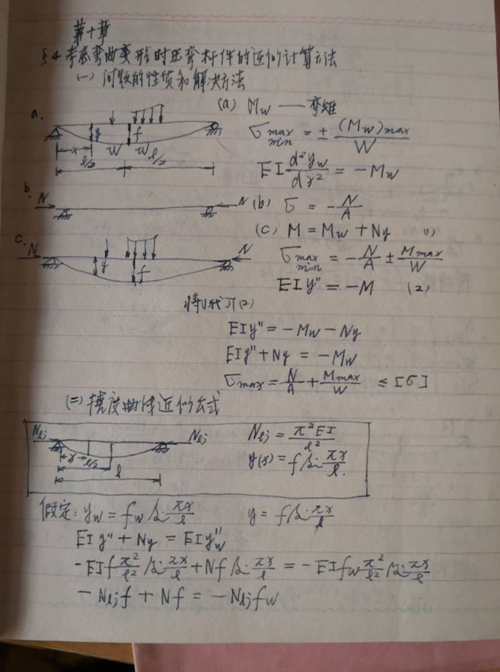 第十节
§4 考虑弯曲变形时压弯杆件的近似计算方法
(一) 问题的性质和解决方法
a. x l/2 f W W l/2
(a) Mw —— 弯矩
σ max min = ± (Mw)max / W
EI d²yw / dx² = -Mw
b. N N
(b) σ = - N/A
(c) M = Mw + Ny (1)
c. N N f
σ max min = - N/A ± Mmax / W
EIy" = -M (2)
将(1)代入(2)
EIy" = -Mw - Ny
EIy" + Ny = -Mw
σmax = N/A + Mmax / W ≤ [σ]
(二) 挠度曲线近似公式
Nlj Nlj x l/2 l
Nlj = π²EI / l²
y(x) = f sin πx/l
假定: yw = fw sin πx/l y = f sin πx/l
EIy" + Ny = EIyw"
-EIf π²/l² sin πx/l + Nf sin πx/l = -EIfw π²/l² sin πx/l
-Nljf + Nf = -Nljfw